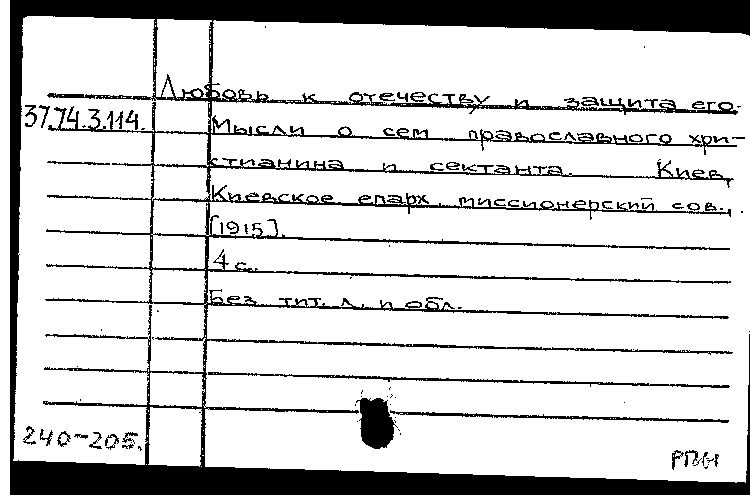 Любовь к отечеству и защита его.
37.74.3.114. Мысли о сем православного хри-
стианина и сектанта. Киев,
Киевское епарх. миссионерский сов.,
[1915].
4 с.
Без тит. л. и обл.
240-205.